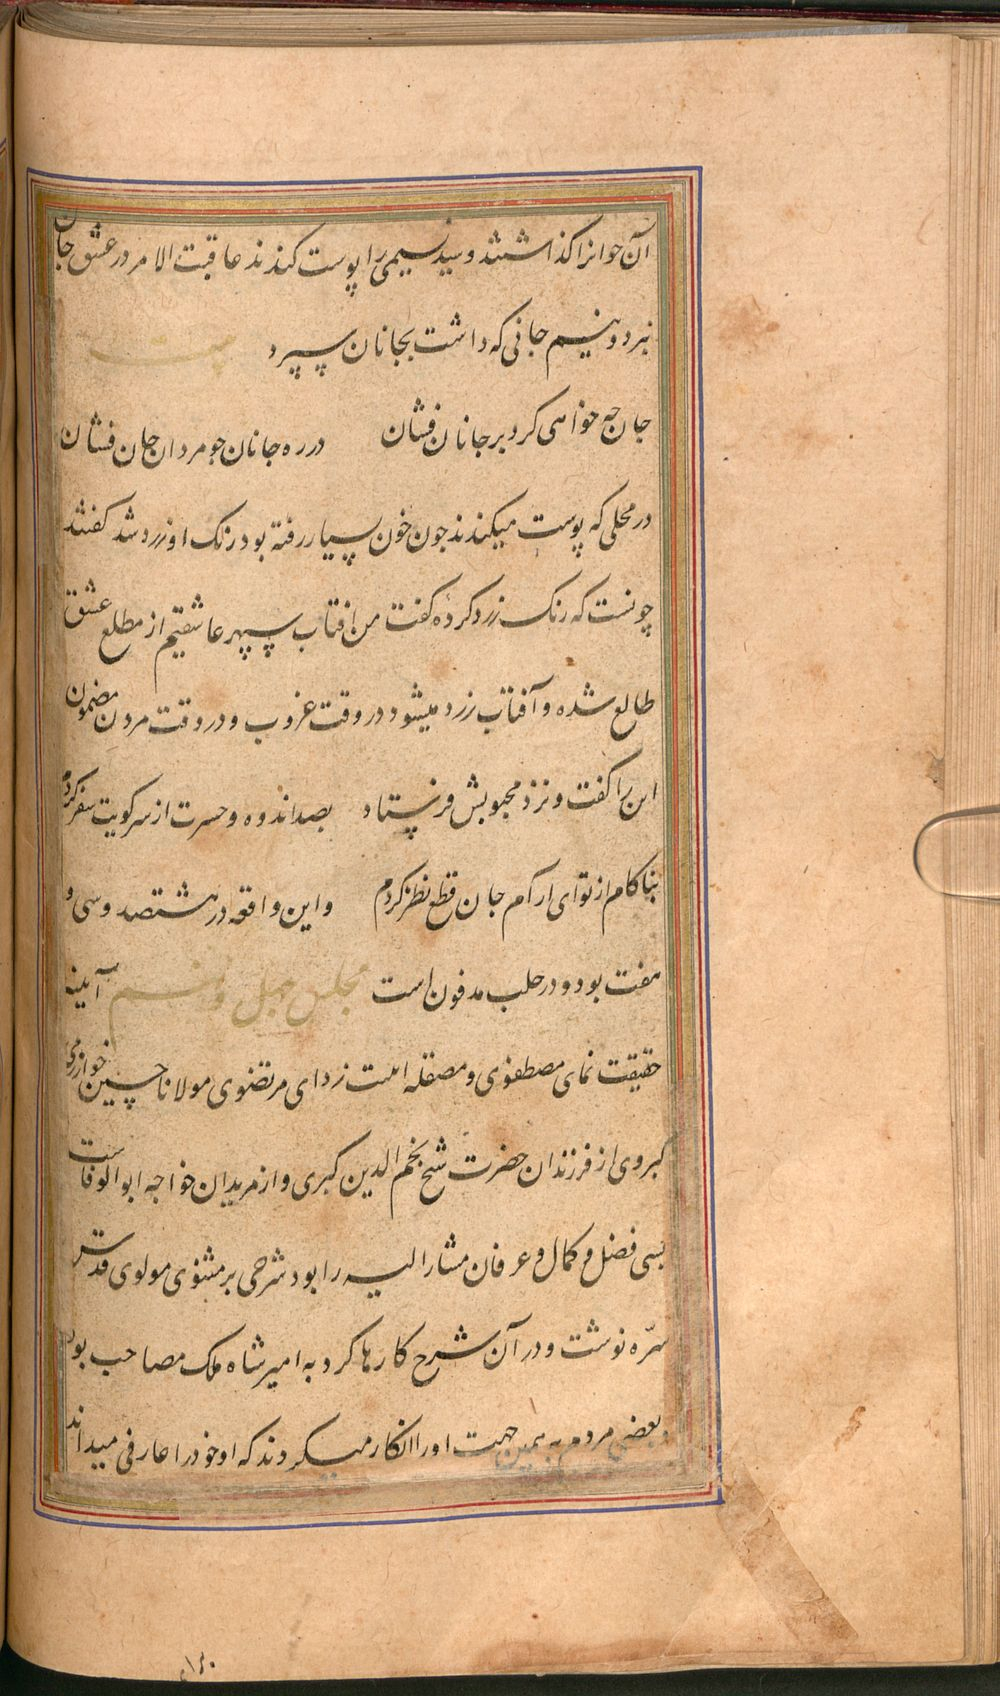 آن جوانرا گذاشتند و سید نسیمی را پوست کندند عاقبت الامر در عشق جان
نبرد و نسیم جانی که داشت بجانان سپرد بیت
جان چه خواهی کرد بر جانان فشان در ره جانان چو مردان جان فشان
در محلی که پوست میکندند چون خون بسیار رفته بود رنک او زرد شد گفتند
چونست که رنک زرد کردهٔ گفت من افتاب سپهر عاشقیم از مطلع عشق
طالع شده و آفتاب زرد میشود در وقت غروب و در وقت مردن مضمون
این را گفت و نزد محبوبش فرستاد بصد اندوه و حسرت از سر کویت سفر کردم
بناکام از تو ای ارام جان قطع نظر کردم و این واقعه در هشتصد و سی و
هفت بود و در حلب مدفون است مجلس چهل و نهم آیینه
حقیقت نمای مصطفوی و مصقله زدای مرتضوی مولانا حسین خوارزمی
کبروی از فرزندان حضرت شیخ نجم الدین کبری و از مریدان خواجه ابو الوفاست
بسی فضل و کمال و عرفان مشار الیه را بود شرحی بر مثنوی مولوی قدس
سرّه نوشت و در آن شرح کارها کرد به امیر شاه ملک مصاحب بود
و بعضی مردم به همین جهت او را انکار میکردند که او خود را عارفی میداند